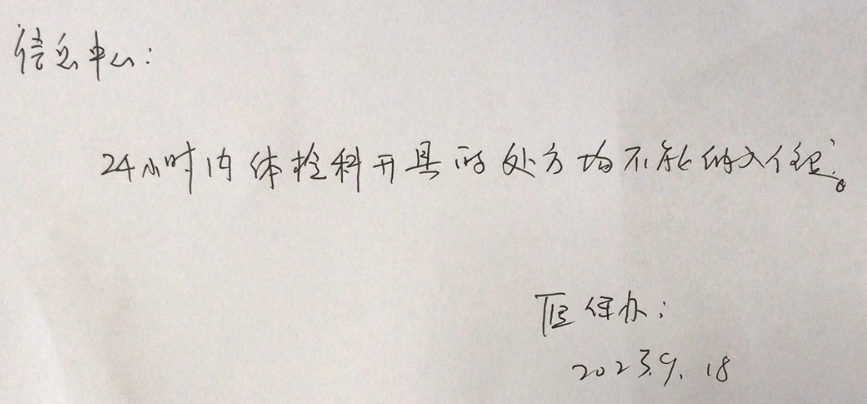 信息中心:
24小时内体检科开具的处方均不能纳入住院。
医保办:
2023.9.18